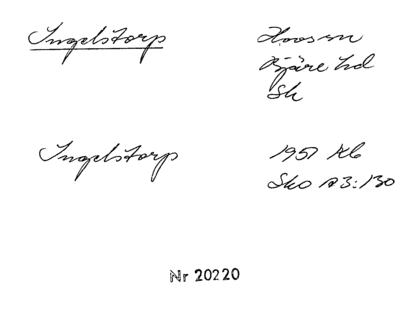 Ingelstorp
Hovs sn
Bjäre hd
Sk
Ingelstorp
1951 Kb
Sko A3:130
Nr 20220